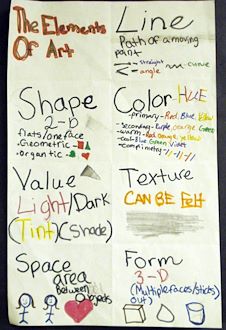 The Elements
Of Art
Line
Path of a moving
point
straight
angle
curve
Shape
2-D
flats/oneface
-Geometric-
-organtic-
Color HUE
-primary-Red, Blue, Yellow
-Secondary-Purple, orange Green
-warm-Red orange yellow
-cool-Blue Green Violet
-complimetry-
Value
Light/Dark
(Tint)(Shade)
Texture
CAN BE Felt
Space
area
Between
Objects
Form
3-D
(Multiplefaces/sticks
out)